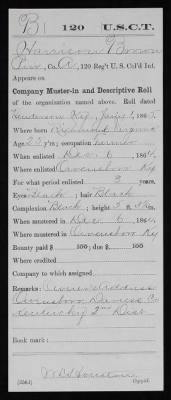 B | 120 | U.S.C.T.
Harrison Brown
Pvt., Co. A, 120 Reg't U. S. Col'd Inf.
Appears on
Company Muster-in and Descriptive Roll
of the organization named above. Roll dated
Henderson Ky, June 1, 1865.
Where born Richmond Virginia
Age 25 y'rs; occupation Farmer
When enlisted Dec. 6, 1864.
Where enlisted Owensboro Ky
For what period enlisted 3 years.
Eyes Black; hair Black
Complexion Black; height 5 ft. in.
When mustered in Dec. 6, 1864.
Where mustered in Owensboro Ky
Bounty paid $ 100; due $ 100
Where credited
Company to which assigned
Remarks: Owners address
Owensboro Daviess Co
Kentucky 2nd Dist.
Book mark:
Houston
(356d) Copyist.